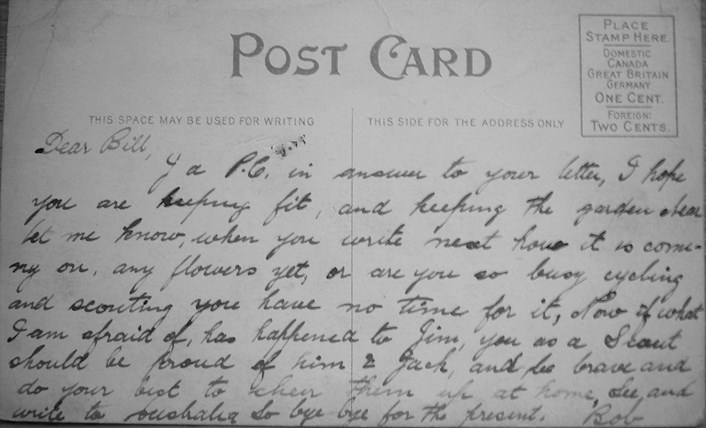 POST CARD
PLACE
STAMP HERE.
DOMESTIC
CANADA
GREAT BRITAIN
GERMANY
ONE CENT.
FOREIGN:
TWO CENTS.
THIS SPACE MAY BE USED FOR WRITING
THIS SIDE FOR THE ADDRESS ONLY
Dear Bill,
a P.C. in answer to your letter, I hope
you are keeping fit, and keeping the garden
let me know, when you write next how it is comi-
ng on, any flowers yet, or are you so busy cycling
and scouting you have no time for it, Now if what
I am afraid of, has happened to Jim, you as a Scout
should be proud of him & Jack, and be brave and
do your best to cheer them up at home, and
write to so bye bye for the present. Bob